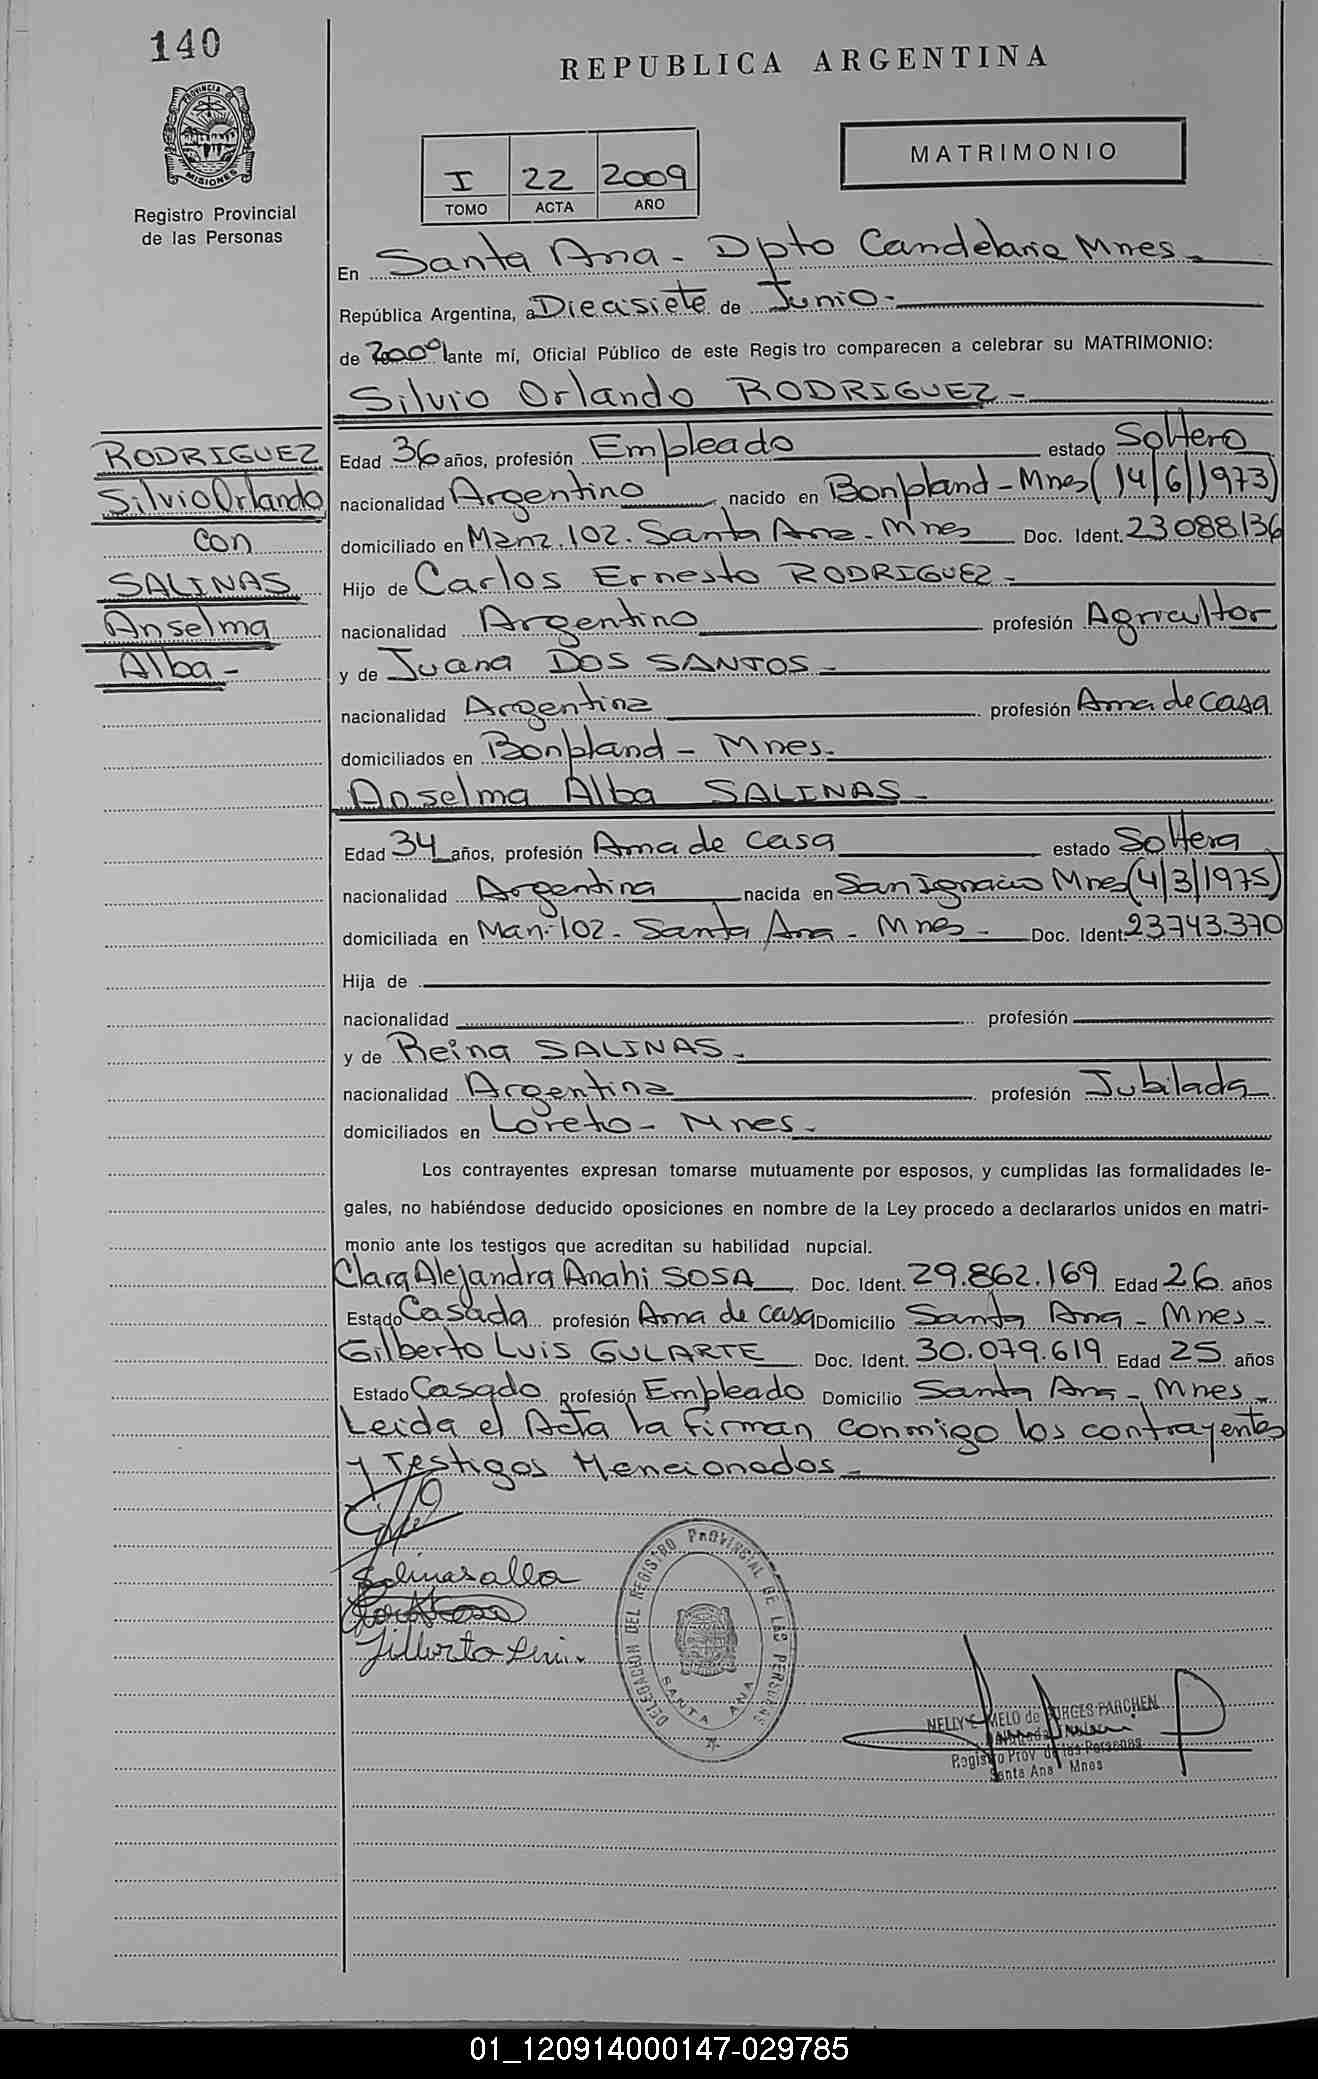 140
REPUBLICA ARGENTINA
PROVINCIA DE
MISIONES
Registro Provincial
de las Personas
I 22 2009
TOMO ACTA AÑO
MATRIMONIO
En Santa Ana - Dpto Candelaria Mnes.
República Argentina, a Diecisiete de Junio.-
de 2009 ante mí, Oficial Público de este Registro comparecen a celebrar su MATRIMONIO:
Silvio Orlando RODRIGUEZ.-
RODRIGUEZ
Silvio Orlando
Con
SALINAS
Anselma
Alba.-
Edad 36 años, profesión Empleado estado Soltero
nacionalidad Argentino nacido en Bonpland - Mnes (14/6/1973)
domiciliado en Manz. 102. Santa Ana - Mnes Doc. Ident. 23.088.136
Hijo de Carlos Ernesto RODRIGUEZ.-
nacionalidad Argentino profesión Agricultor
y de Juana DOS SANTOS.-
nacionalidad Argentina profesión Ama de casa
domiciliados en Bonpland - Mnes.-
Anselma Alba SALINAS.-
Edad 34 años, profesión Ama de casa estado Soltera
nacionalidad Argentina nacida en San Ignacio Mnes (4/3/1975)
domiciliada en Man. 102 - Santa Ana - Mnes - Doc. Ident. 23.743.370
Hija de
nacionalidad profesión
y de Reina SALINAS.-
nacionalidad Argentina profesión Jubilada
domiciliados en Loreto - Mnes.-
Los contrayentes expresan tomarse mutuamente por esposos, y cumplidas las formalidades le-
gales, no habiéndose deducido oposiciones en nombre de la Ley procedo a declararlos unidos en matri-
monio ante los testigos que acreditan su habilidad nupcial.
Clara Alejandra Anahi SOSA Doc. Ident. 29.862.169 Edad 26 años
Estado Casada profesión Ama de casa Domicilio Santa Ana - Mnes -
Gilberto Luis GULARTE Doc. Ident. 30.079.619 Edad 25 años
Estado Casado profesión Empleado Domicilio Santa Ana - Mnes -
Leida el Acta la firman conmigo los contrayentes
y Testigos Mencionados.-
Salinas alba
Gilberto Luis
DELEGACION DEL REGISTRO PROVINCIAL DE LAS PERSONAS
SANTA ANA
NELLY E. MELO de BORGES PARCHEN
Registro Prov de las Personas
Santa Ana Mnes
01_120914000147-029785